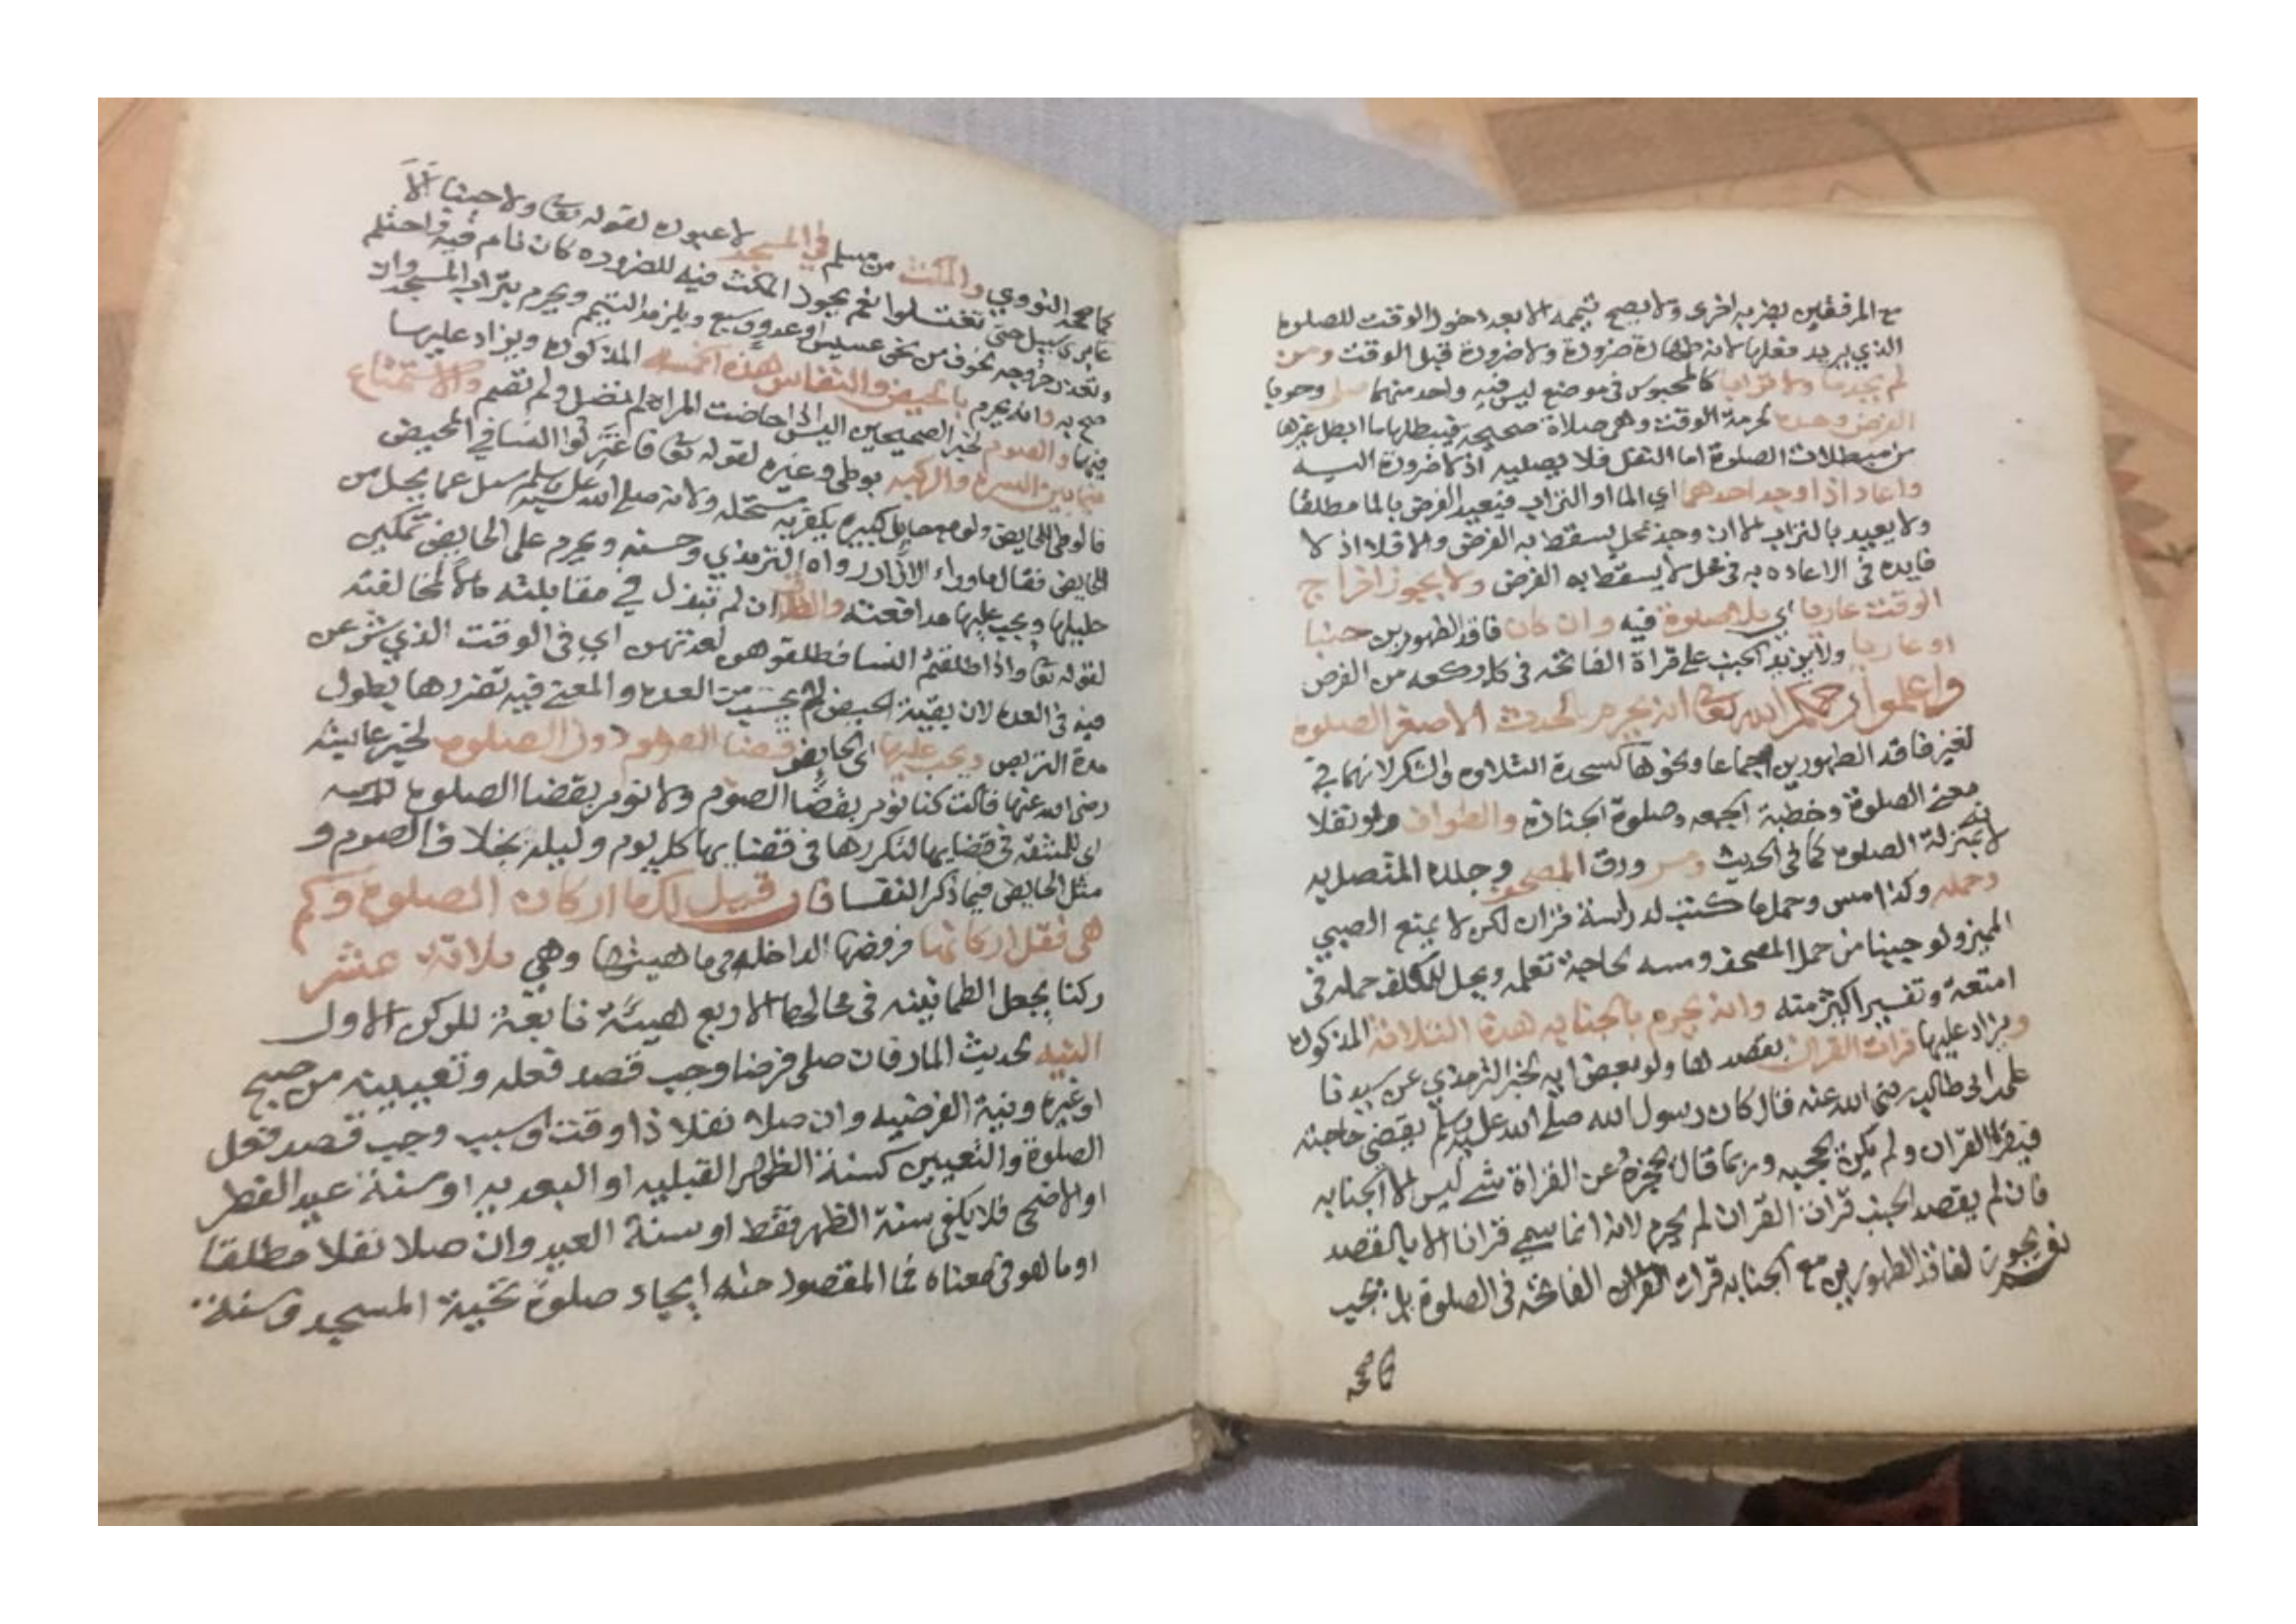 مع المرفقين بضربة اخرى ولا يصح تيممه الا بعد دخول الوقت للصلوة
الذي يريد فعلها لانه طهارة ضرورة ولا ضرورة قبل الوقت ومن
لم يجد ما ولا ترابا كالمحبوس في موضع ليس فيه واحد منهما صلى وجوبا
الفرض وحده لحرمة الوقت وهي صلاة صحيحة فيبطلها ما ابطل غيرها
من مبطلات الصلوة اما النفل فلا يصليه اذ لا ضرورة اليه
واعاد اذا وجد احدهما اي الما او التراب فيعيد الفرض بالما مطلقا
ولا يعيد بالتراب الا ان وجد بمحل يسقط به الفرض والا فلا اذ لا
فايده في الاعاده به في محل لا يسقط به الفرض ولا يجوز اخراج
الوقت عاريا اي بلا صلوة فيه وان كان فاقد الطهورين جنبا
او عاريا ولا يزيد الجنب على قراة الفاتحه في كل ركعه من الفرض
واعلموا رحمكم الله تعا انه يحرم بالحدث الاصغر الصلوة
لغير فاقد الطهورين اجماعا ونحوها كسجدة التلاوه والشكر لانهما في
معنى الصلوة وخطبة الجمعه وصلوة الجنازه والطواف ولو نفلا
لانه بمنزلة الصلوه كما في الحديث ومس ورق المصحف وجلده المتصل به
وحمله وكذا مس وحمل ما كتب لدراسة قران لكن لا يمنع الصبي
المميز ولو جنبا من حمل المصحف ومسه لحاجة تعلمه ويحل للمكلف حمله في
امتعة وتفسير اكثر منه وانه يحرم بالجنابه هذه الثلاثة المذكوره
ويزاد عليها قراة القران بقصدها ولو بعض ايه لخبر الترمذي عن سيدنا
على ابي طالب رضي الله عنه قال كان رسول الله صلى الله عليه وسلم يقضي حاجته
فيقرا القران ولم يكن يحجبه وربما قال يحجزه عن القراة شي ليس الا الجنابه
فان لم يقصد الجنب قراة القران لم يحرم لانه انما سمي قرانا الا بالقصد
نعم يجوز لفاقد الطهورين مع الجنابه قراة القران الفاتحه في الصلوة بل تجب
كما صححه
كما صححه النووي والمكث من مسلم في المسجد لا عبوره لقوله تعا ولا جنبا الا
عابري سبيل حتى تغتسلوا نعم يجوز المكث فيه للضروره كان نام فيه فاحتلم
وتعذر خروجه لخوف من نحو عسس او عدو وسبع ويلزمه التيمم ويحرم بتراب المسجد وان
صح به وانه يحرم بالحيض والنفاس هذه الخمسه المذكوره ويزاد عليها
فيها والصوم لخبر الصحيحين اليس اذا حاضت المراه لم تصل ولم تصم والاستمتاع
فيما بين السرة والركبه بوطى وغيره لقوله تعا فاعتزلوا النسا في المحيض
فالوطى للحايض ولو مع حايل كبيره يكفر به مستحله ولانه صلى الله عليه وسلم سيل عما يحل من
الحايض فقال ما وراء الازار رواه الترمذي وحسنه ويحرم على الحايض تمكين
حليلها ويجب عليها مدافعته والطلاق ان لم تبذل في مقابلته مالا لمخالفته
لقوله تعا واذا طلقتم النسا فطلقوهن لعدتهن اي في الوقت الذي شرعن
فيه في العده لان بقية الحيض لم يحسب من العده والمعنى فيه تضررها بطول
مدة التربص ويجب عليها اى الحايض قضا الصوم دون الصلوه لخبر عايشه
رضى الله عنها قالت كنا نومر بقضا الصوم ولا نومر بقضا الصلوه
اى للمشقه في قضايها لتكررها في قضايها كل يوم وليله بخلاف الصوم و
مثل الحايض فيما ذكر النفسا فان قيل لك ما اركان الصلوه وكم
هي فقل اركانها فروضها الداخله في ماهيتها وهي ثلاثة عشر
ركنا بجعل الطمانينه في محالها الاربع هيئة تابعة للركن الاول
النيه لحديث المار فان صلى فرضا وجب قصد فعله وتعيينه من صبح
او غيره ونية الفرضيه وان صلا نفلا ذا وقت او سبب وجب قصد فعل
الصلوة والتعيين كسنة الظهر القبليه او البعديه او سنة عيد الفطر
او الاضحى فلا يكفي سنة الظهر فقط او سنة العيد وان صلا نفلا مطلقا
او ما هو في معناه مما المقصود منه ايجاد صلوة تحية المسجد وسنة